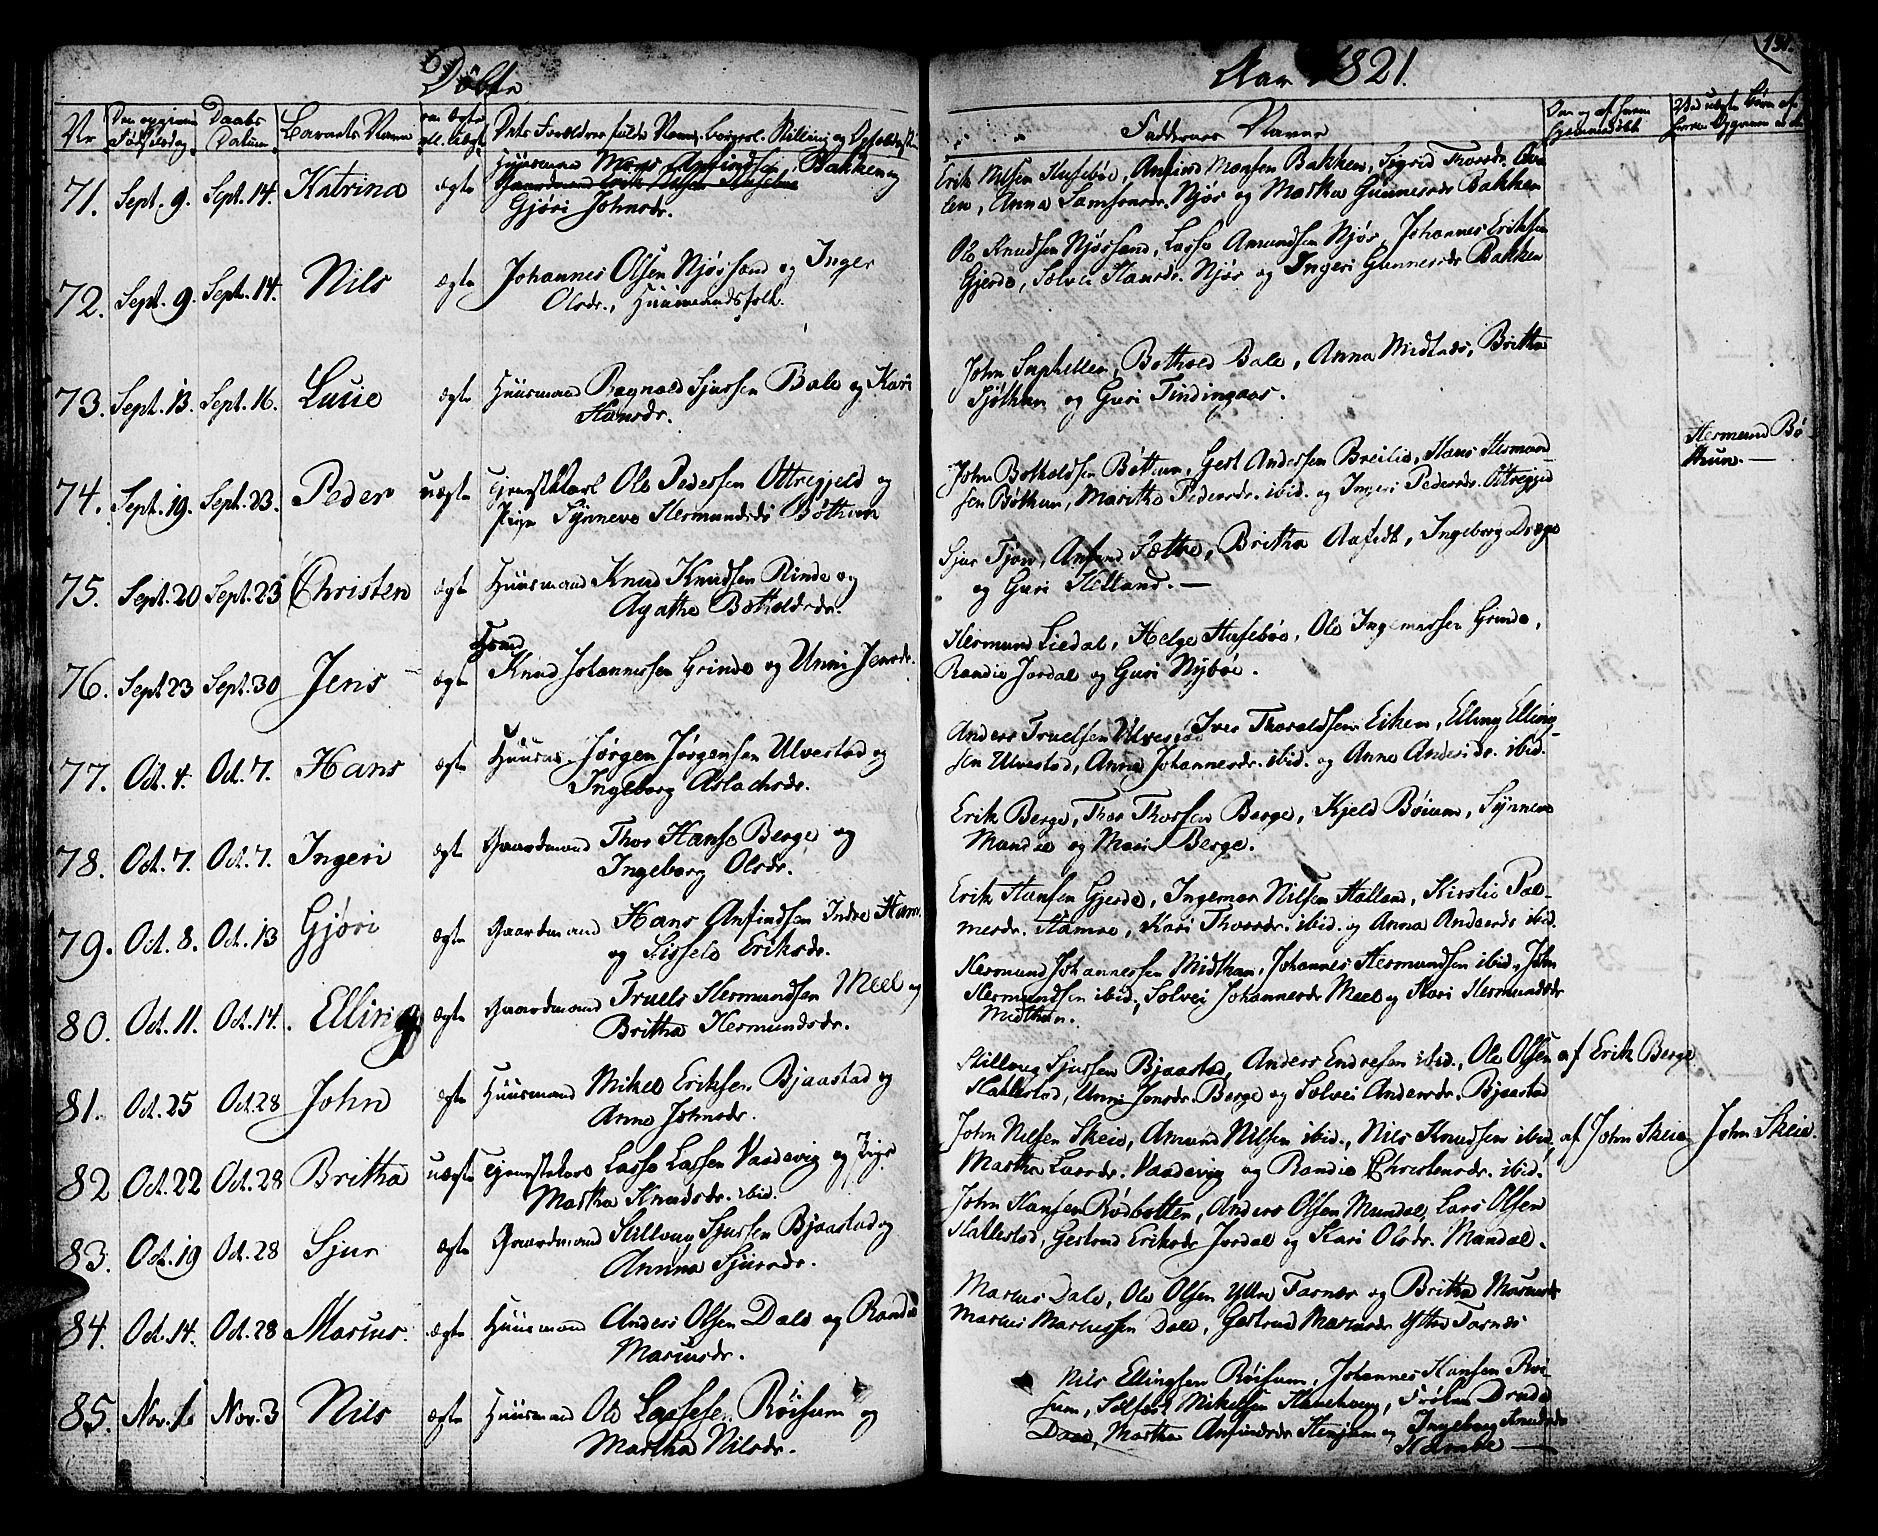 Døbte
Aar 1821.
151.
Nr
Den opgivne Fødselsdag
Daabs Datum
Barnets Navn
om ægte ell. uægte
Dets Forældres fulde Navne, borgerl. Stilling og Opholdssted
Faddernes Navne
71. Sept. 9. Sept. 14. Katrina ægte Huusmand Mons Anfindsen Bakken og
Gaardmand Erik Nilsen Husebøe
Gjøri Johnsdr.
Erik Nilsen Husebøe, Anfind Monsen Bakken, Sigrid Thorsdr.
Anna Samsonsdr. Njøs og Martha Gunnersdr Bakken
72. Sept. 9. Sept. 14. Nils ægte Johannes Olsen Njøssand og Inger
Olsdr., Huusmandsfolk.
Ole Knudsen Njøssand, Lasse Amundsen Njøs, Johannes Eriksen
Gjerde, Solvei Hansdr. Njøs og Ingeri Gunnersdr Bakken
73. Sept. 13. Sept. 16. Lucie ægte Huusmand Ragnald Sjursen Bale og Kari
Hansdr.
John Suphellen, Bothold Bale, Anna Midlads, Britha
Sjøthun og Guri Tindingaas.
74. Sept. 19. Sept. 23. Peder uægte Tjenestekarl Ole Pedersen Ottregjeld og
Pige Synneve Hermundsdr Bøthun
John Botholdsen Bøthun, Gert Andersen Breilid, Hans Hermund-
sen Bøthun, Maritha Pedersdr. ibid. og Ingeri Pedersdr. Ottregjeld
Hermund Bø-
thun. —
75. Sept. 20 Sept. 23 Christen ægte Huusmand Knud Knudsen Rinde og
Agatha Botholdsdr.
Sjur Tjøn, Anfind Sætre, Britha Aafedt, Ingeborg Drægo
og Guri Hetland. —
76. Sept 23 Sept. 30 Jens ægte
Knud Johannessen Grinde og Unni Jensdr.
Hermund Liedal, Helge Husebøe, Ole Ingemarsen Grinde,
Randie Jordal og Guri Nybøe.
77. Oct. 4. Oct. 7. Hans ægte Huusm. Jørgen Jørgensen Ulvestad og
Ingeborg Aslachsdr.
Anders Truelsen Ulvestad Iver Thoraldsen Eikem, Elling Elling-
sen Ulvestad, Anna Johannesdr. ibid. og Anna Andersdr. ibid.
78. Oct. 7. Oct. 7. Ingeri ægte Gaardmand Thor Hanse Berge og
Ingeborg Olsdr.
Erik Berge, Thor Thorsen Berge, Kjeld Bøium, Synneve
Mundal og Mari Berge.
79. Oct. 8. Oct. 13 Gjøri ægte Gaardmand Hans Anfindsen Indre Ham.
og Sissele Eriksdr.
Erik Hansen Gjerde, Ingemar Nilsen Halland, Kirstie Pal-
mersdr. Hamre, Kari Thorsdr. ibid. og Anna Andersdr ibid.
80. Oct. 11. Oct. 14. Elling ægte Gaardmand Truels Hermundsen Meel og
Britha Hermundsdr.
Hermund Johannessen Midthun, Johannes Hermundsen ibid., John
Hermundsen ibid., Solvei Johannesdr Meel og Kari Hermundsdr
Midthun.
81. Oct. 25 Oct. 28 John ægte Huusmand Mikel Eriksen Bjaastad og
Anna Johnsdr.
Skilloug Sjursen Bjaastad, Anders Endresen ibid., Ole Olsen
Hallestad, Unni Jonsdr. Berge og Solvei Andersdr. Bjaastad
af Erik Berge
82 Oct. 22 Oct. 28 Britha uægte Tjenestekarl Lasse Lassen Vaadevig og Pige
Martha Knudsdr. ibid.
John Nilsen Skeie, Amund Nilsen ibid., Nils Knudsen ibid.
Martha Larsdr. Vaadevig og Randie Christensdr. ibid.
af John Skeie
John Skeie.
83. Oct. 19 Oct. 28 Sjur ægte Gaardmand Skilloug Sjursen Bjaastad og
Annna Sjursdr.
John Hansen Rødbotten, Anders Olsen Mundal, Lars Olsen
Hallestad, Gertrud Eriksdr Jordal og Kari Olsdr. Mundal.
84. Oct. 14. Oct. 28 Marcus. ægte Huusmand Anders Olsen Dale og Randie
Marcusdr.
Marcus Dale, Ole Olsen Yttre Farnæs og Britha Marcusdr
Marcus Marcussen Dale, Gertrud Marcusdr Yttre Farnæs
85. Nov. 1 Nov. 3 Nils ægte Huusmand Ole Lassesen Røisum og
Martha Nilsdr.
Nils Ellingsen Røisum, Johannes Hansen Røi-
sum, Mikelsen Frøken Drude
Daae, Martha Anfindsdr Henjum og Ingeborg Knudsdr